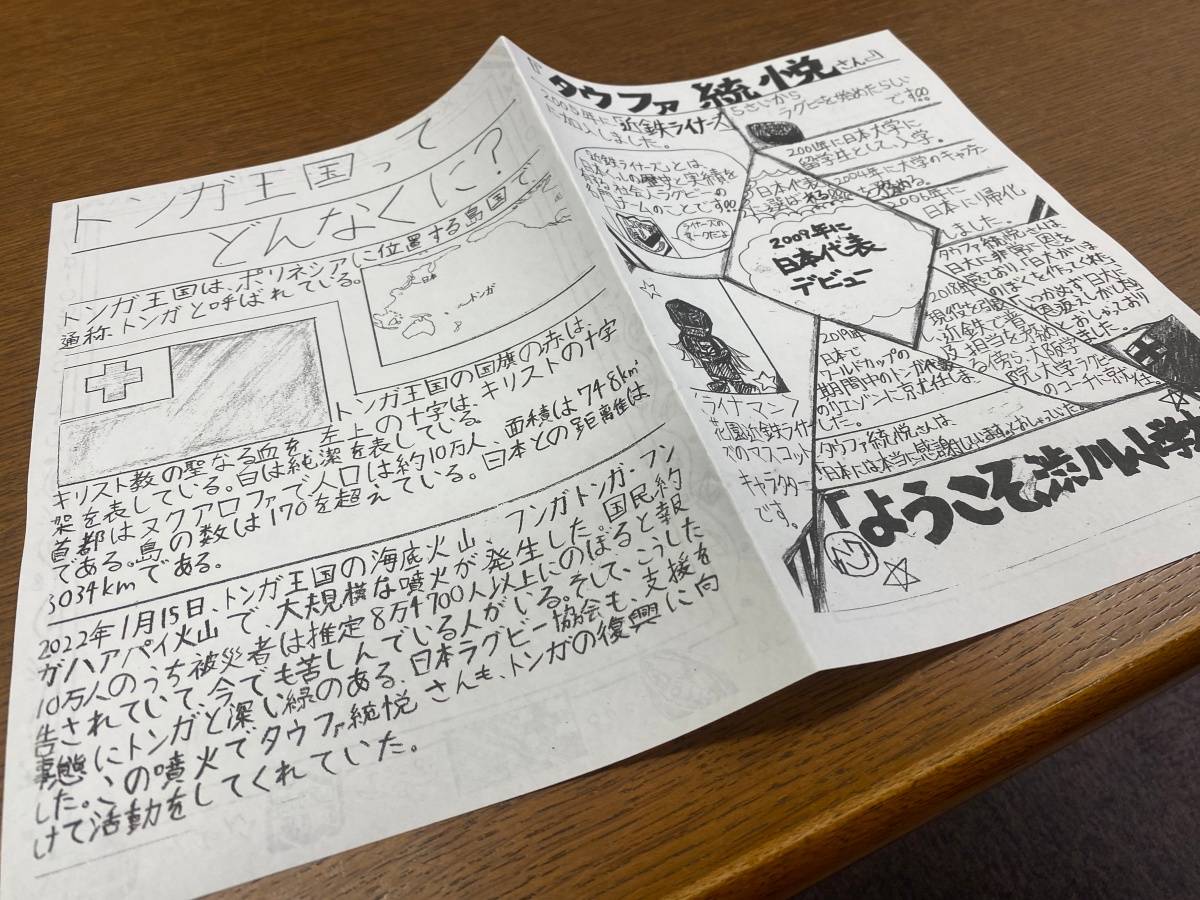 トンガ王国って
どんなくに?
トンガ王国は、ポリネシアに位置する島国で
通称トンガと呼ばれている。
日本
トンガ
トンガ王国の国旗の赤は、
キリスト教の聖なる血を、左上の十字は、キリストの十字
架を表している。白は純潔を表している。
首都はヌクアロファで人口は約10万人、面積は748km²
である。島の数は170を超えている。日本との距離は
8034kmである。
2022年1月15日、トンガ王国の海底火山、フンガトンガ・フン
ガハアパイ火山で、大規模な噴火が発生した。国民約
10万人のうち被災者は推定8万4700人以上にのぼると報
告されていて、今でも苦しんでいる人がいる。そして、こうした
事態にトンガと深い縁のある、日本ラグビー協会も、支援を
した。この噴火でタウファ統悦さんも、トンガの復興に向
けて活動をしてくれていた。
『タウファ 統悦さん』
2005年に「近鉄ライナーズ」
に加入しました。
5さいから
ラグビーを始めたらしい
です!!
「近鉄ライナーズ」とは、
日本 の歴史と実績を
社会人ラグビーの
チームのことです!!
ライナーズの
マークだよ
2001年に日本大学に
留学生として、入学。
2004年に大学のキャプテン
を務める。
2006年に
日本に帰化
しました。
日本代表
2009年に
日本代表
デビュー
タウファ統悦さんは
日本に非常に恩を
感じており、「日本が今
のぼくを作ってくれた
いつかめず日本に
恩返えしがしたい」
とおしゃっており
ました。
2018
現役を引退
し、近鉄で普
及担当を務め
る傍ら、大阪学
院大学ラグビー
のコーチに就任
2019年
日本で
ワールドカップの
期間中のトンガ代表
のリエゾンに就任しま
した。
タウファ統悦さんは、
日本には本当に感謝しています。とおしゃっていた。
「ライナマン」
花園近鉄ライナー
ズのマスコット
キャラクター
です。
「ようこそ渋川小学校